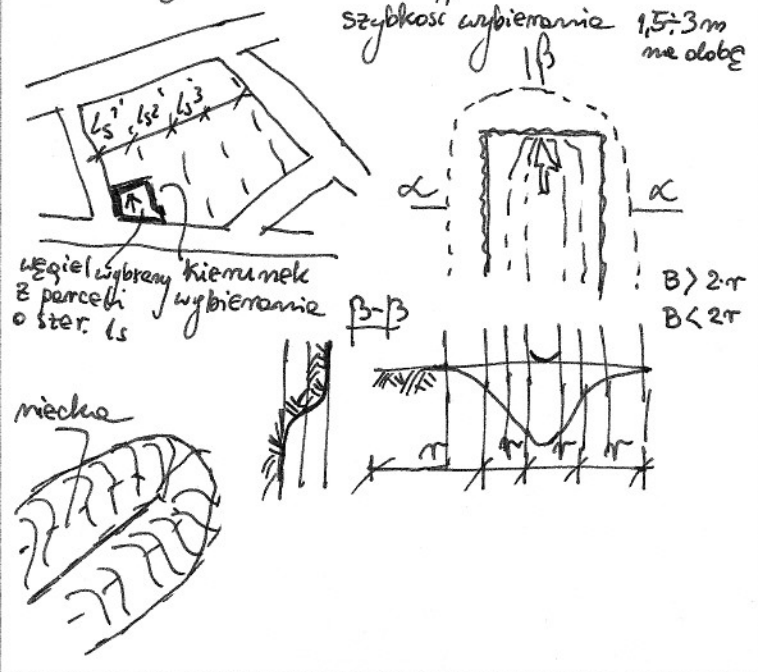 szybkość wybierania 1,5÷3m
na dobę
β
ls1 ls2 ls3
α α
węgiel wybrany
z parceli
o szer. ls
kierunek
wybierania
B > 2·r
B < 2r
β-β
niecka
r r r r